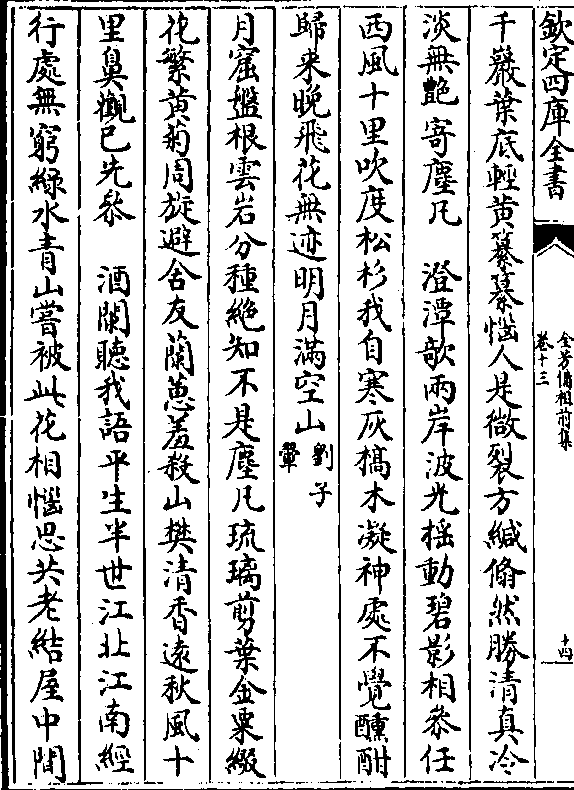 欽定四庫全書
全芳備祖前集
卷十三
十四
千巖葉底輕黄纂纂惱人是微裂方緘翛然勝清真冷
淡無艶寄塵凡　澄潭欹兩岸波光揺動碧影相叅任
西風十里吹度松杉我自寒灰槁木凝神處不覺醺酣
歸来晚飛花無迹明月滿空山劉子翬
月窟盤根雲岩分種絶知不是塵凡琉璃剪葉金粟綴
花繁黄菊周旋避舍友蘭蕙羞殺山樊清香逺秋風十
里鼻觀已先叅　酒闌聽我語平生半世江北江南經
行處無窮緑水青山嘗被此花相惱思共老結屋中間